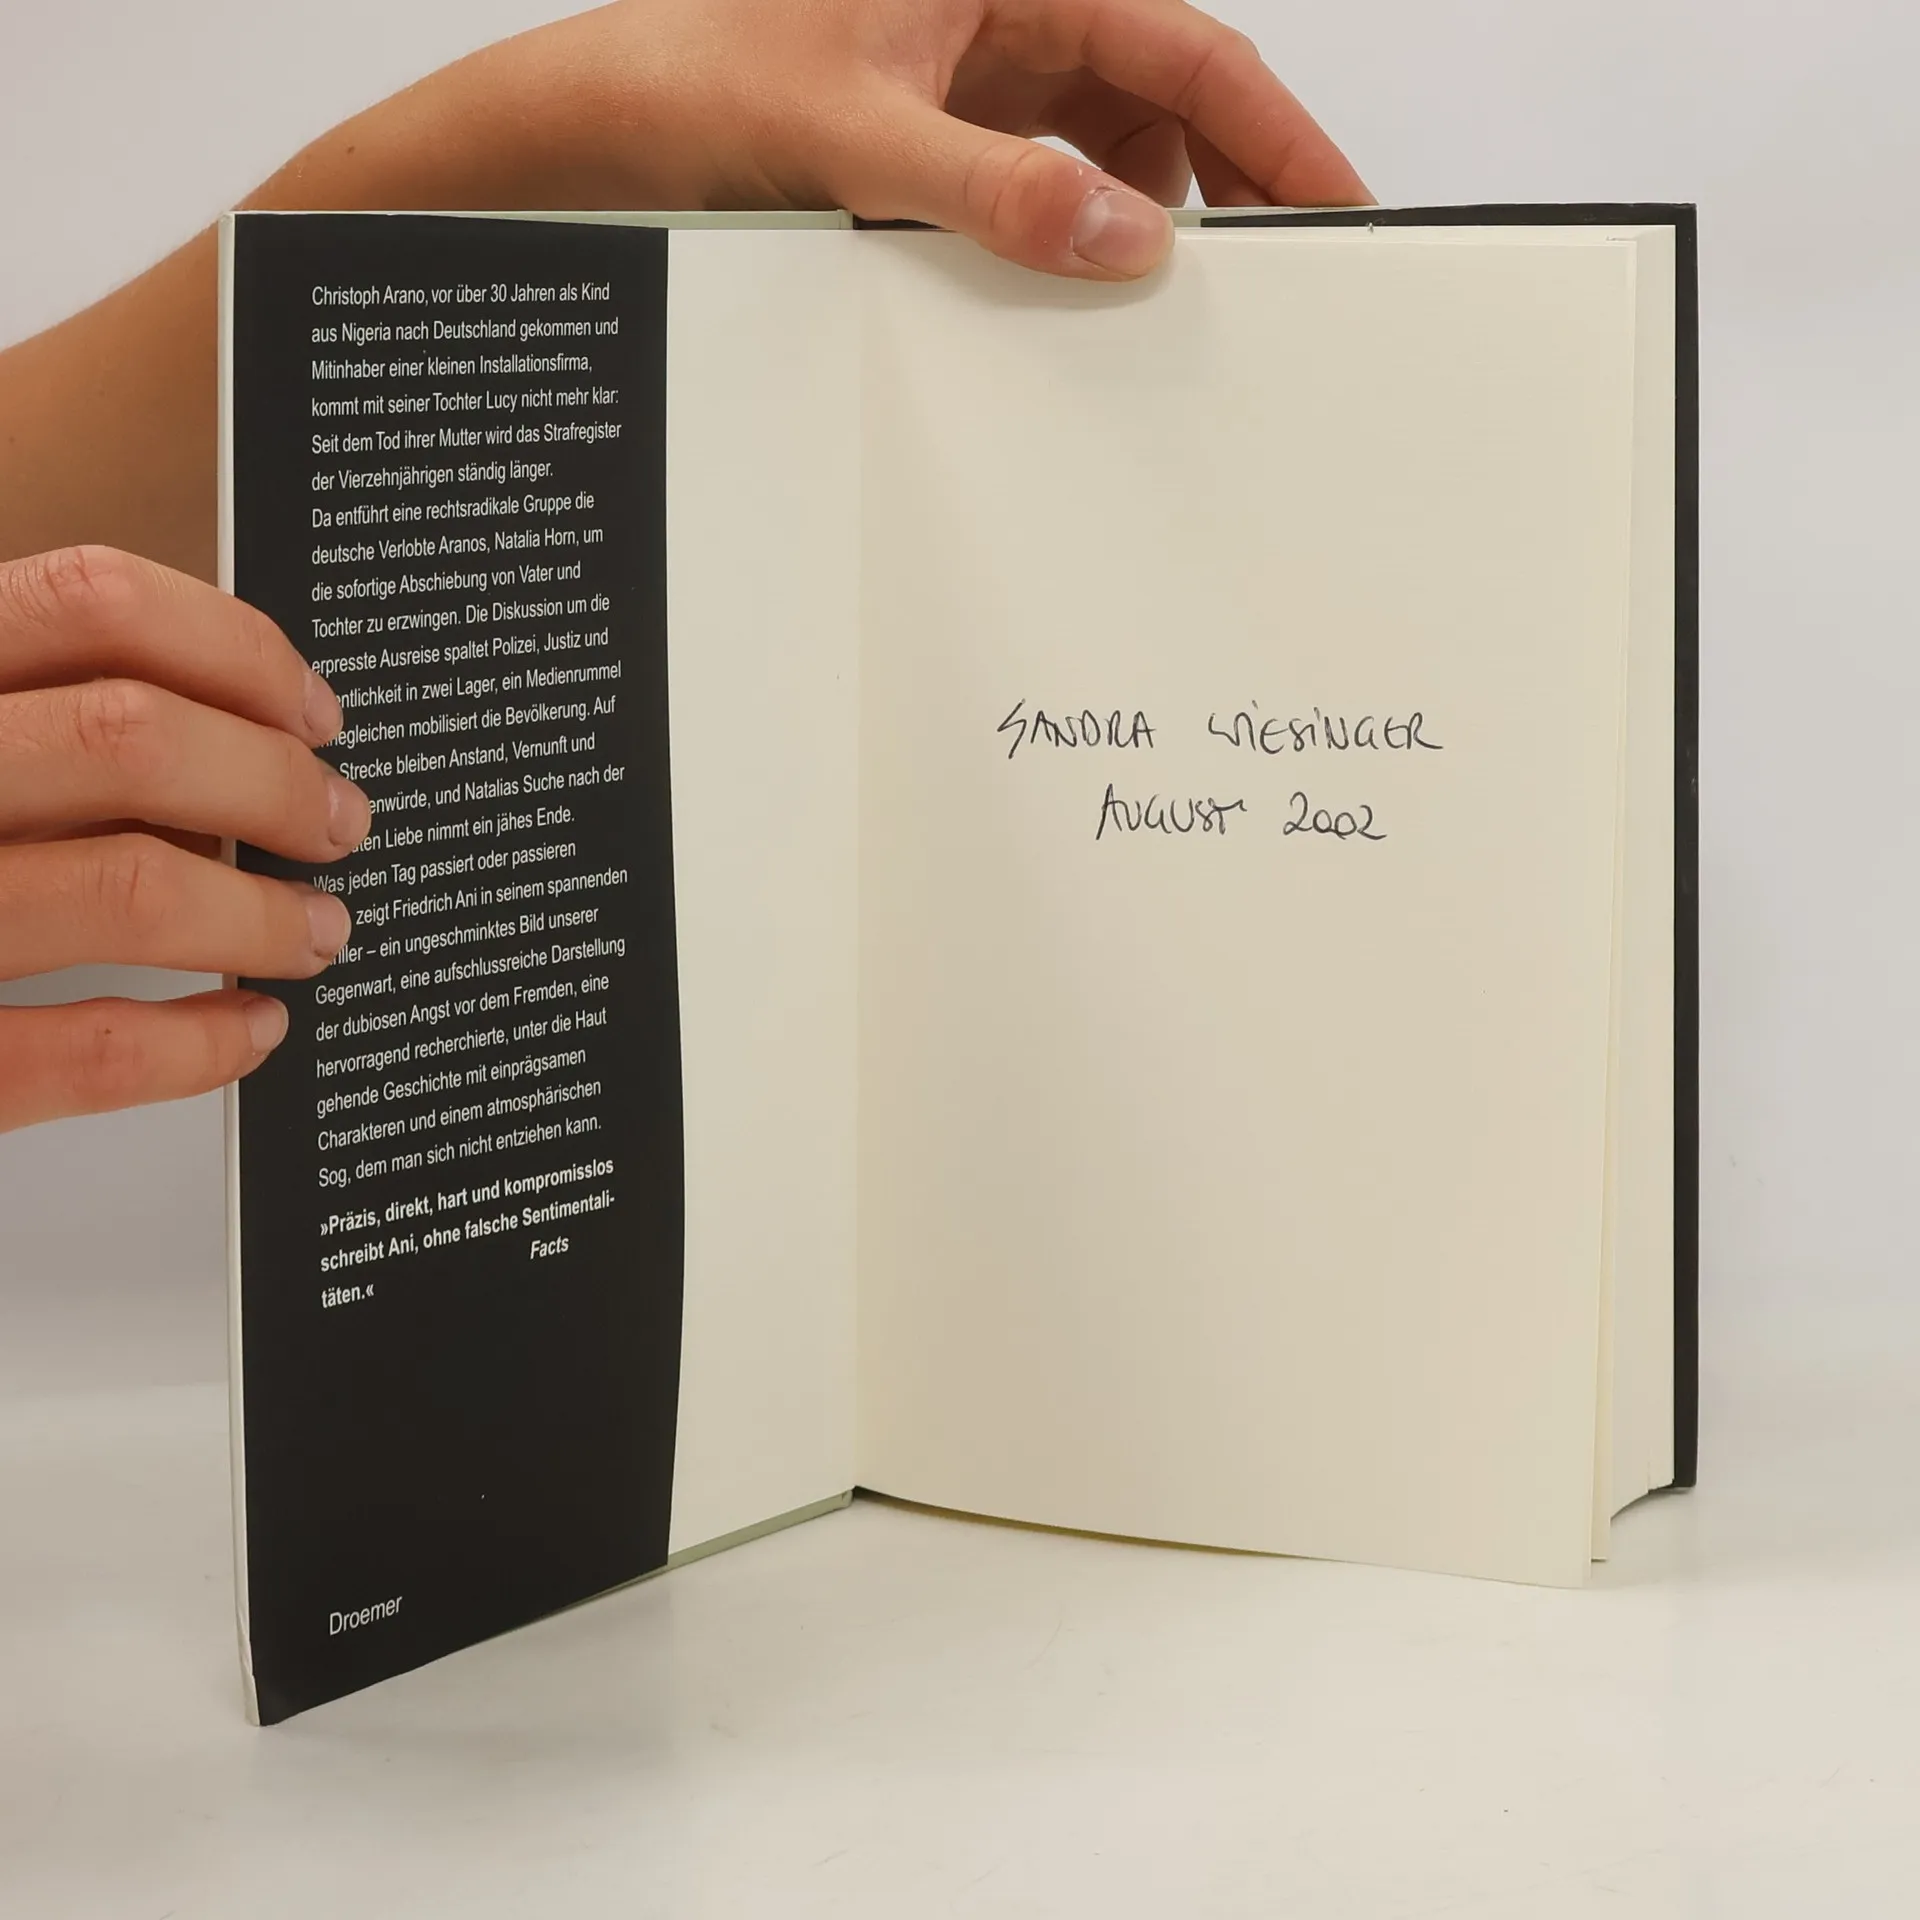 Christoph Arano, vor über 30 Jahren als Kind
aus Nigeria nach Deutschland gekommen und
Mitinhaber einer kleinen Installationsfirma,
kommt mit seiner Tochter Lucy nicht mehr klar:
Seit dem Tod ihrer Mutter wird das Strafregister
der Vierzehnjährigen ständig länger.
Da entführt eine rechtsradikale Gruppe die
deutsche Verlobte Aranos, Natalia Horn, um
die sofortige Abschiebung von Vater und
Tochter zu erzwingen. Die Diskussion um die
erpresste Ausreise spaltet Polizei, Justiz und
entlichkeit in zwei Lager, ein Medienrummel
negleichen mobilisiert die Bevölkerung. Auf
Strecke bleiben Anstand, Vernunft und
enwürde, und Natalias Suche nach der
ten Liebe nimmt ein jähes Ende.
Was jeden Tag passiert oder passieren
zeigt Friedrich Ani in seinem spannenden
iller – ein ungeschminktes Bild unserer
Gegenwart, eine aufschlussreiche Darstellung
der dubiosen Angst vor dem Fremden, eine
hervorragend recherchierte, unter die Haut
gehende Geschichte mit einprägsamen
Charakteren und einem atmosphärischen
Sog, dem man sich nicht entziehen kann.
»Präzis, direkt, hart und kompromisslos
schreibt Ani, ohne falsche Sentimentali-
täten.«
Facts
Droemer
SANDRA WIESINGER
AUGUST 2002